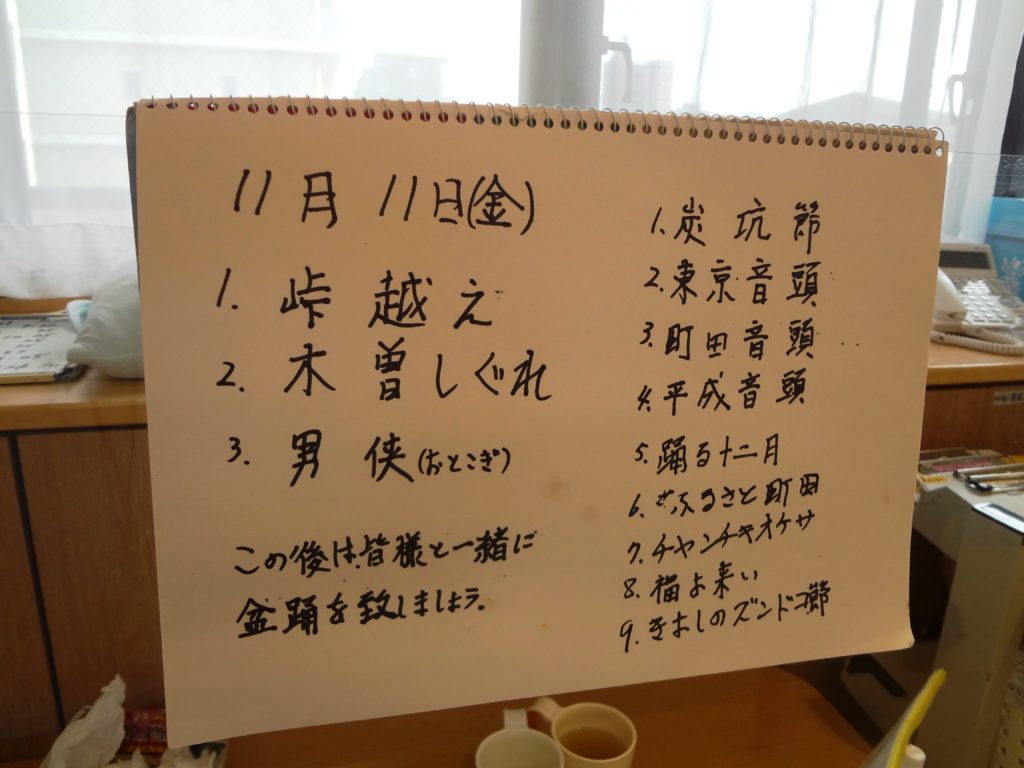 11月11日(金)
1. 峠越え
2. 木曽しぐれ
3. 男侠(おとこぎ)
この後は皆様と一緒に
盆踊を致しましょう.
1. 炭坑節
2. 東京音頭
3. 町田音頭
4. 平成音頭
5. 踊る十二月
6. ふるさと町田
7. チャンチキオケサ
8. 福よ来い
9. きよしのズンドコ節